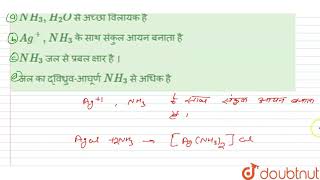 a NH₃, H₂O से अच्छा विलायक है
b Ag⁺, NH₃ के साथ संकुल आयन बनाता है
c NH₃ जल से प्रबल क्षार है ।
d जल का द्विध्रुव-आघूर्ण NH₃ से अधिक है
Ag⁺ , NH₃ के साथ संकुल आयन बनाता
है ।
AgCl +2NH₃ → [Ag(NH₃)₂] Cl
doubtnut